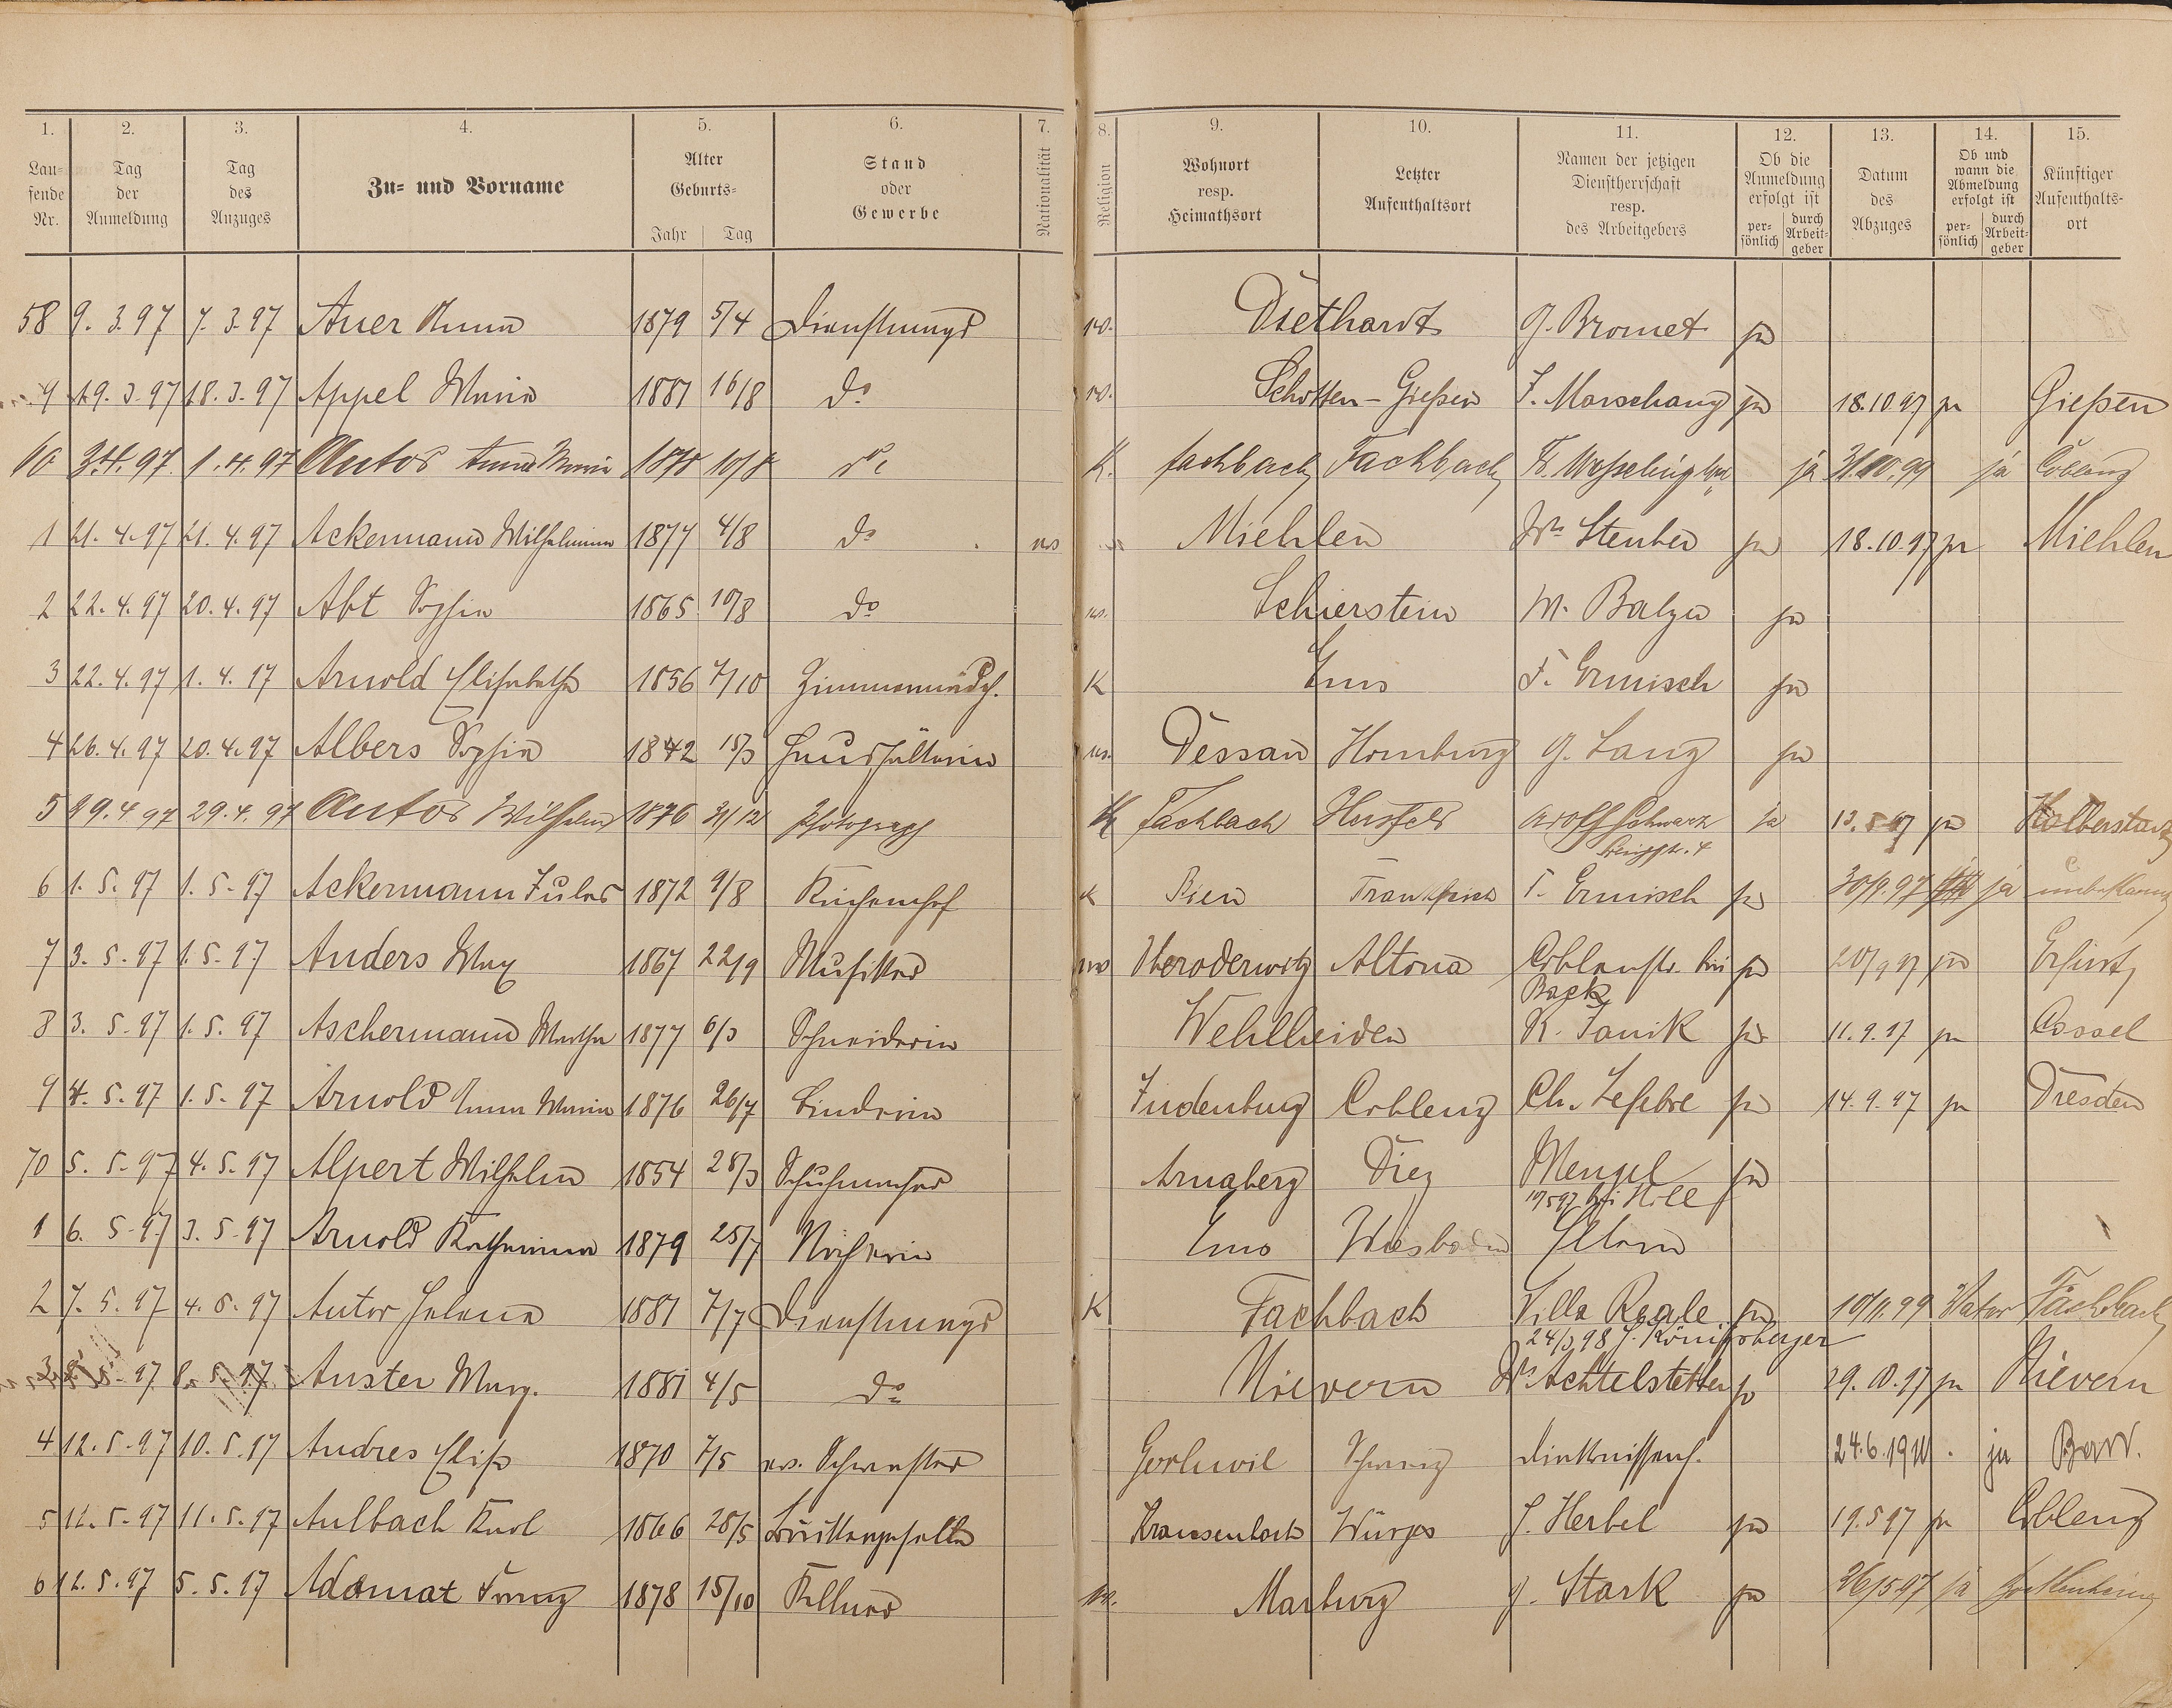 1. 2. 3. 4. 5. 6. 7. 8. 9. 10. 11. 12. 13. 14. 15.
Laufende Nr. Tag der Anmeldung Tag des Anzuges Zu- und Vorname Alter Geburts- Jahr Tag Stand oder Gewerbe Nationalität Religion Wohnort resp. Heimathsort Letzter Aufenthaltsort Namen der jetzigen Dienstherrschaft resp. des Arbeitgebers Ob die Anmeldung erfolgt ist persönlich durch Arbeitgeber Datum des Abzuges Ob und wann die Abmeldung erfolgt ist persönlich durch Arbeitgeber Künftiger Aufenthaltsort
58 9. 3. 97 7. 3. 97 Auer Anna 1879 5/4 Dienstmagd ev. Diethardt G. Bromet ja
9 19. 3. 97 18. 3. 97 Appel Maria 1881 16/8 do ev. Schotten - Gießen F. Marschang ja 18.10.97 ja Gießen
60 3.4. 97 1. 4. 97 Autor Anna Maria 10/8 do K. Fachbach Fachbach ja ja
1 21. 4. 97 21. 4. 97 Ackermann Wilhelmine 1877 4/8 do ev Miehlen Ww Steuber ja 18.10.97 ja Miehlen
2 22. 4. 97 20. 4. 97 Abt Sophie 1865 10/8 do ev. Schierstein W. Balzer ja
3 22. 4. 97 1. 4. 97 Arnold Elisabethe 1856 7/10 Zimmermädch. K Ems F. Ermisch ja
4 26. 4. 97 20. 4. 97 Albers Sophie 1842 15/3 Haushälterin ev. Dessau Homburg G. Lang ja
5 29. 4 97 29. 4. 97 Autor Wilhelm 1876 31/12 Photograph K Fachbach Hersfeld Adolf Schwarz ja 13. 5 97 ja Halberstadt
6 1. 5. 97 1. 5. 97 Ackermann Jules 1872 9/8 Küchenchef K Frankreich F. Ermisch ja 30/9. 97 ja unbekannt
7 3. 5. 97 1. 5. 97 Anders Max 1867 22/9 Musiker ev Oberoderwitz Altona Coblenzstr. bei ja 20/9 97 ja Erfurt
Back
8 3. 5. 97 1. 5. 97 Aschermann Martha 1877 6/3 Schneiderin Wehlheiden K. Janik ja 11. 9. 97 ja Cassel
9 4. 5. 97 1. 5. 97 Arnold Anna Maria 1876 26/7 Judenburg Coblenz Ch. Lefebre ja 14. 9. 97 ja Dresden
70 5. 5. 97 4. 5. 97 Alpert Wilhelm 1854 28/3 Schuhmacher Arnsberg Diez Mengel ja
10/5 97 bei Hill
1 6. 5. 97 3. 5. 97 Arnold Katharina 1879 25/7 Näherin Ems Wiesbaden Eltern
2 7. 5. 97 4. 5. 97 Autor Helena 1881 7/7 Dienstmagd K Fachbach Villa Reale ja 10/11. 99 Vater Fachbach
24/3 98 J. Königsberger
3 97 8. 5. 97 Auster Marg. 1881 4/5 do Nievern Ww Achtelstetter ja 29. 10. 97 ja Nievern
4 12. 5. 97 10. 5. 97 Andres Elise 1870 7/5 ev. Schwester Diakonissenh. ja
5 12. 5. 97 11. 5. 97 Aulbach Karl 1866 28/5 Würges J. Herbel ja 19. 5 97 ja Coblenz
6 12. 5. 97 5. 5. 97 Adamat Franz 1878 15/10 Kellner ev. Marburg G. Stark ja 26/5 97 ja